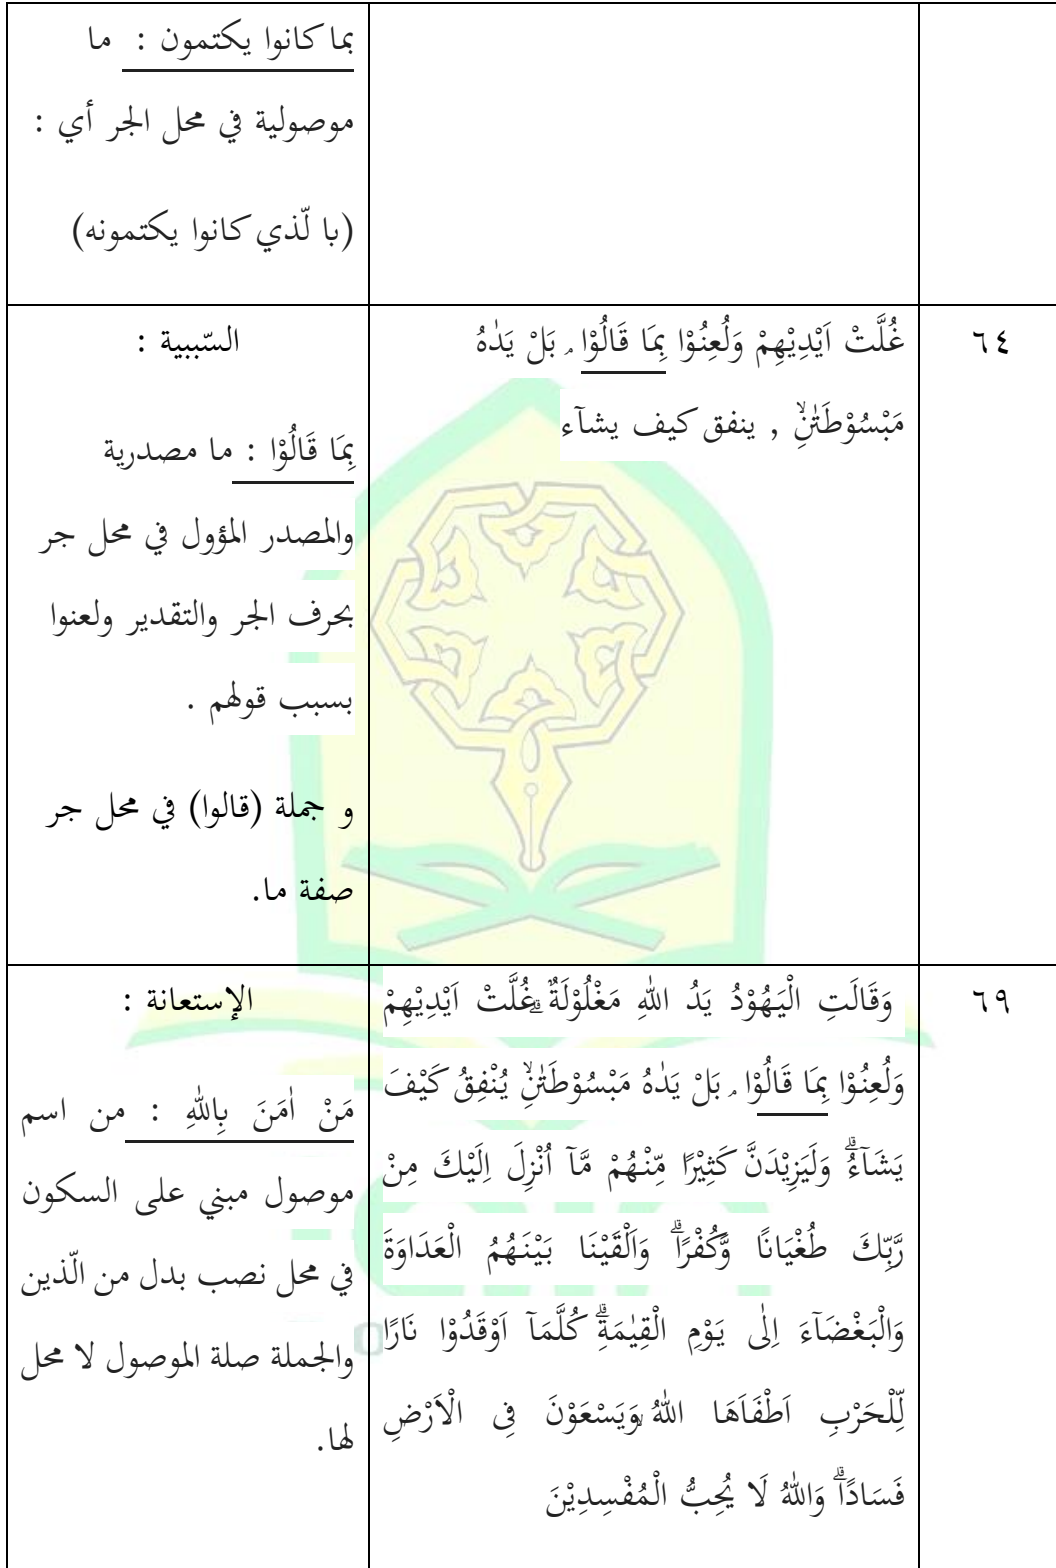 بما كانوا يكتمون : ما
موصولية في محل الجر أي :
(با لّذي كانوا يكتمونه)
٦٤
غُلَّتْ اَيْدِيْهِمْ وَلُعِنُوْا بِمَا قَالُوْا ۘ بَلْ يَدٰهُ
مَبْسُوْطَتٰنِۙ , ينفق كيف يشآء
السّببية :
بِمَا قَالُوْا : ما مصدرية
والمصدر المؤول في محل جر
بحرف الجر والتقدير ولعنوا
بسبب قولهم .
و جملة (قالوا) في محل جر
صفة ما.
٦٩
وَقَالَتِ الْيَهُوْدُ يَدُ اللّٰهِ مَغْلُوْلَةٌ ۗغُلَّتْ اَيْدِيْهِمْ
وَلُعِنُوْا بِمَا قَالُوْا ۘ بَلْ يَدٰهُ مَبْسُوْطَتٰنِۙ يُنْفِقُ كَيْفَ
يَشَاۤءُۗ وَلَيَزِيْدَنَّ كَثِيْرًا مِّنْهُمْ مَّآ اُنْزِلَ اِلَيْكَ مِنْ
رَّبِّكَ طُغْيَانًا وَّكُفْرًاۗ وَاَلْقَيْنَا بَيْنَهُمُ الْعَدَاوَةَ
وَالْبَغْضَاۤءَ اِلٰى يَوْمِ الْقِيٰمَةِۗ كُلَّمَآ اَوْقَدُوْا نَارًا
لِّلْحَرْبِ اَطْفَاَهَا اللّٰهُ ۙوَيَسْعَوْنَ فِى الْاَرْضِ
فَسَادًاۗ وَاللّٰهُ لَا يُحِبُّ الْمُفْسِدِيْنَ
الإستعانة :
مَنْ اٰمَنَ بِاللّٰهِ : من اسم
موصول مبني على السكون
في محل نصب بدل من الّذين
والجملة صلة الموصول لا محل
لها.